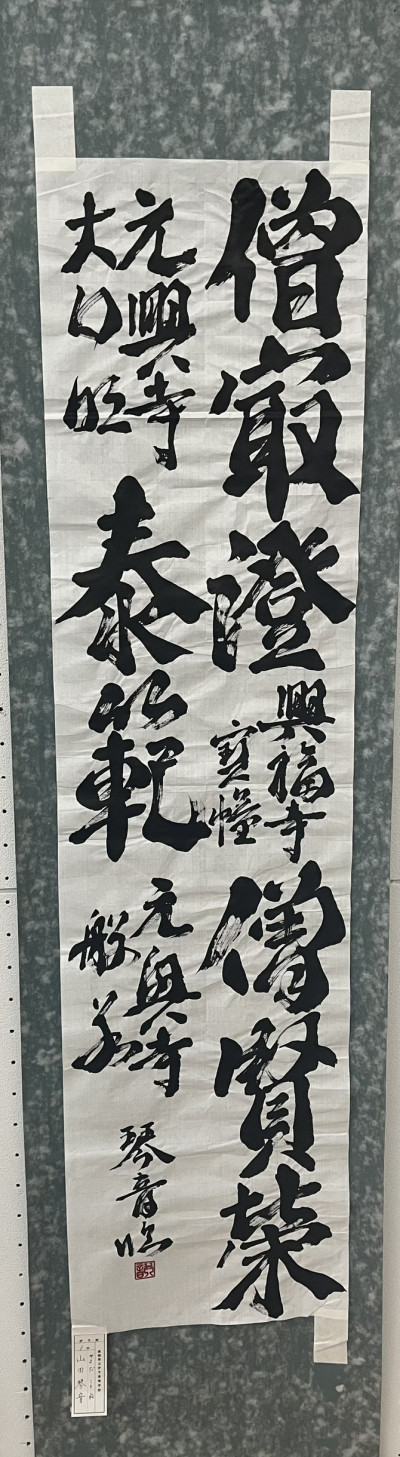 僧㝡澄
興福寺
寶幢
僧賢榮
元興寺
大日
泰範
元興寺
般若
琴音臨
山田琴音